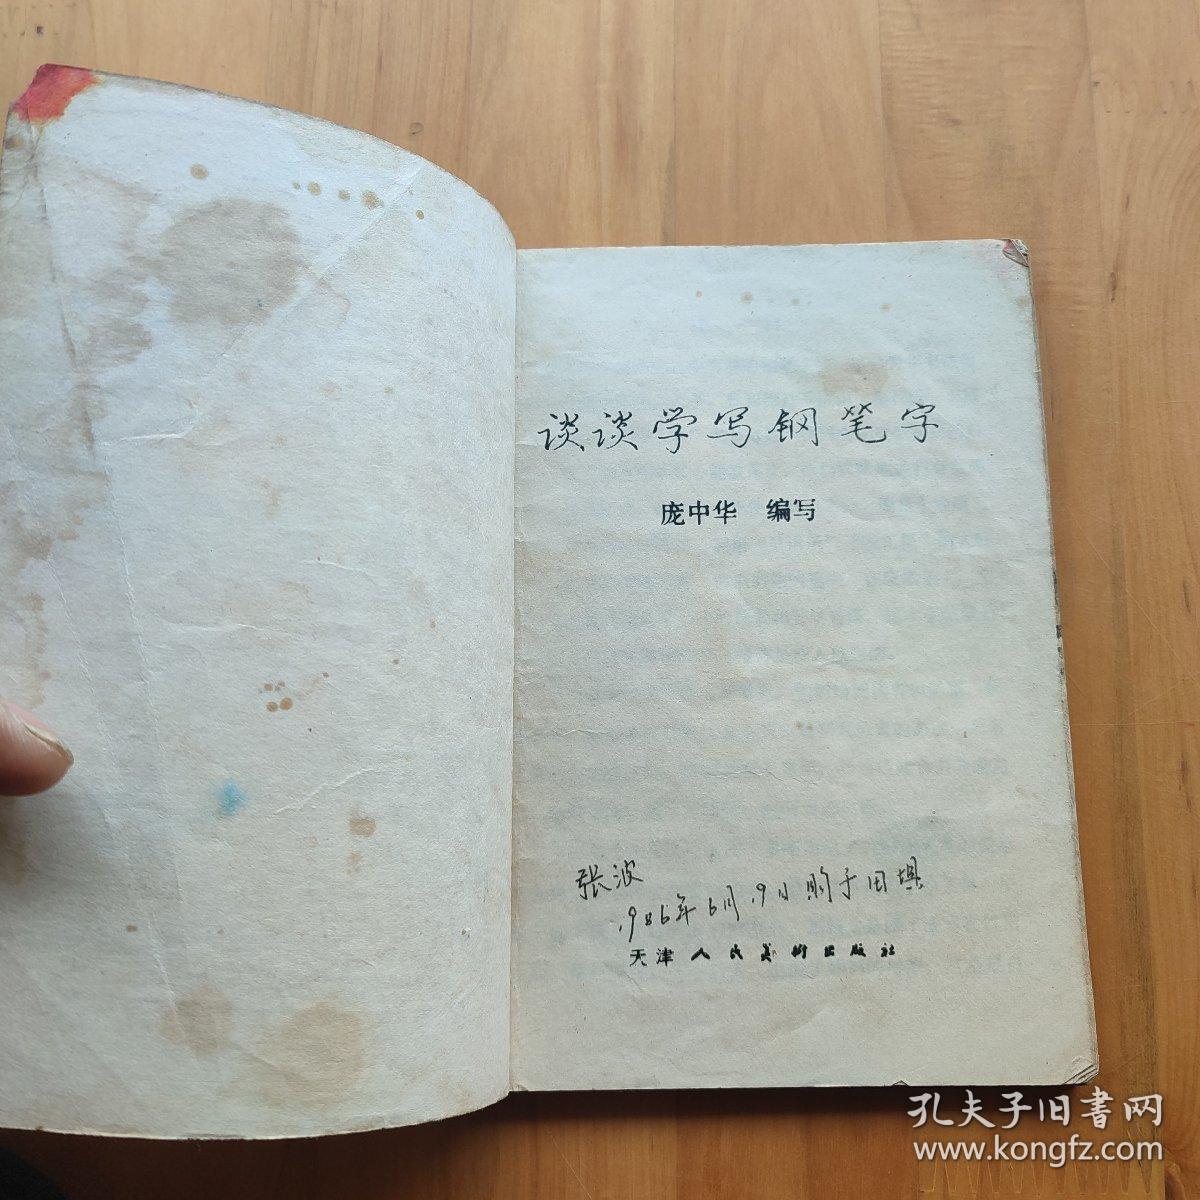 谈谈学写钢笔字
庞中华 编写
张波
1986年6月19日购于田埧
天津人民美术出版社
孔夫子旧書网
www.kongfz.com